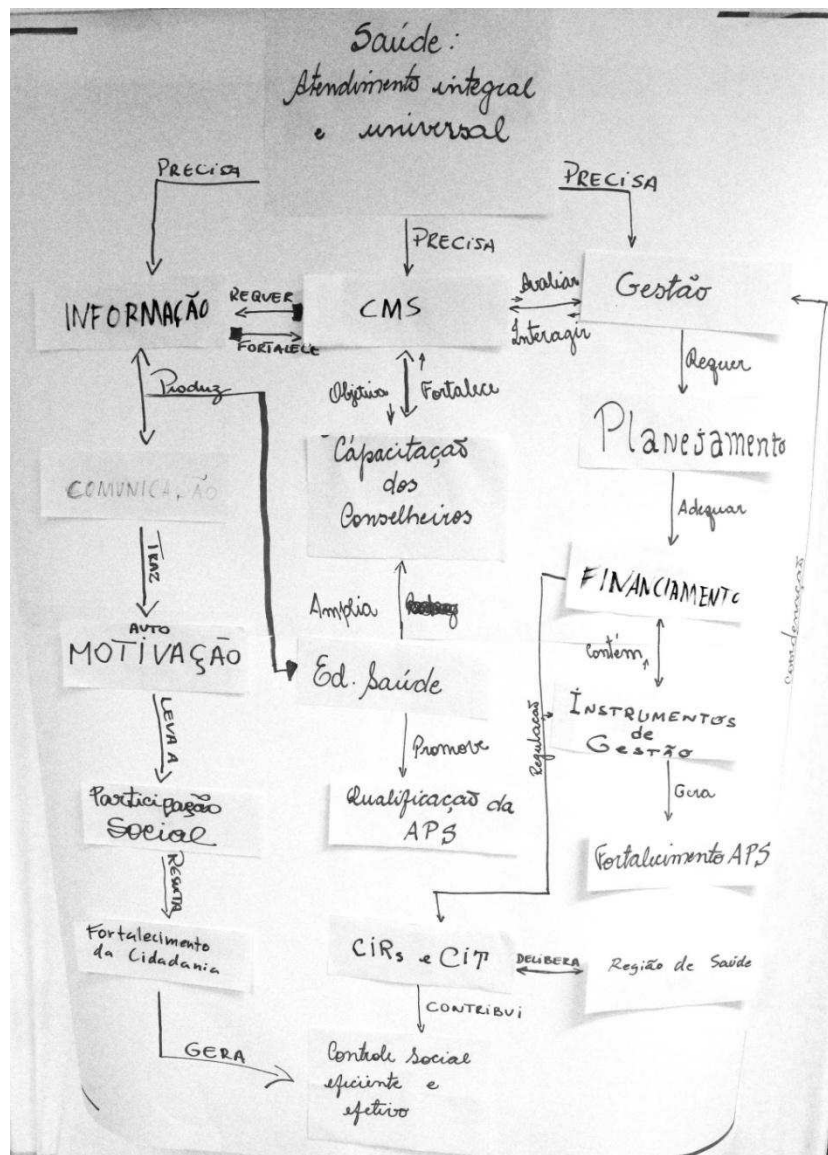 Saúde:
Atendimento integral
e universal
PRECISA
PRECISA
PRECISA
INFORMAÇÃO
REQUER
FORTALECE
CMS
Avaliar
Interagir
Gestão
Produz
Objetivo
Fortalece
Requer
COMUNICAÇÃO
Capacitação
dos
Conselheiros
Planejamento
TRAZ
Adequar
Amplia
FINANCIAMENTO
coordenação
AUTO
MOTIVAÇÃO
Ed. Saúde
Contém
LEVA A
Promove
Regulação
INSTRUMENTOS
de
GESTÃO
Participação
Social
Qualificação da
APS
Gera
Fortalecimento APS
Fortalecimento
da Cidadania
CIRs e CIT
DELIBERA
Região de Saúde
CONTRIBUI
GERA
Controle Social
eficiente e
efetivo